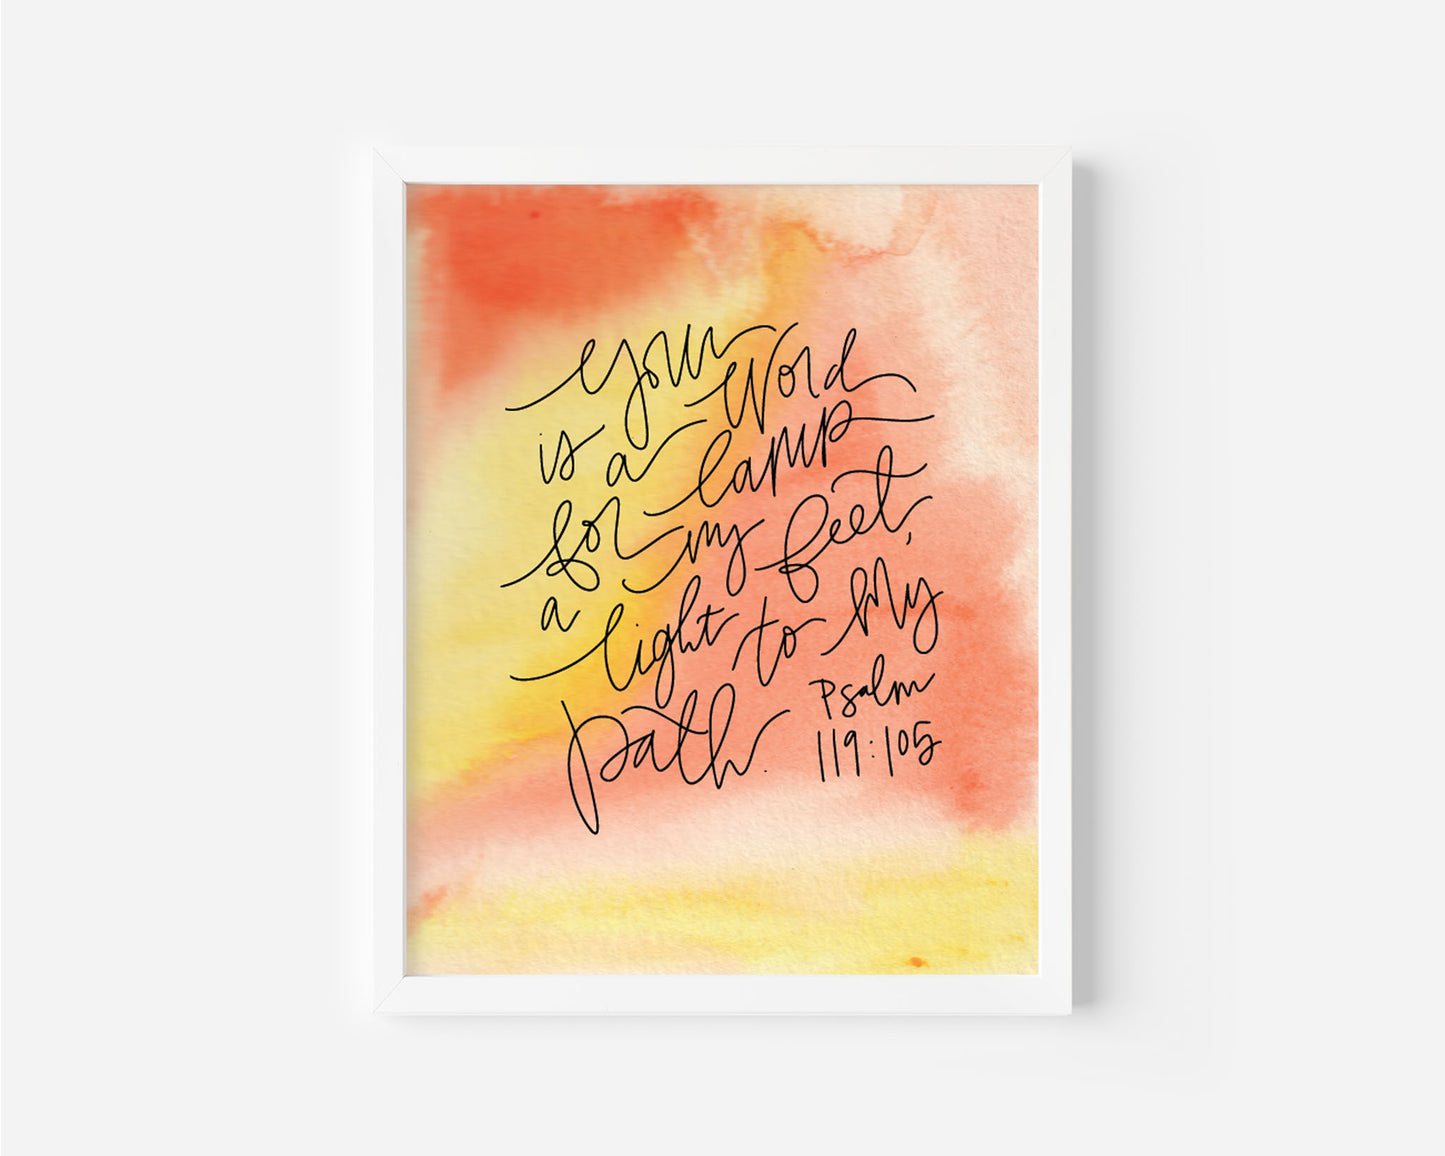 Your Word
is a lamp
for my feet,
a light to My
path.
Psalm
119:105